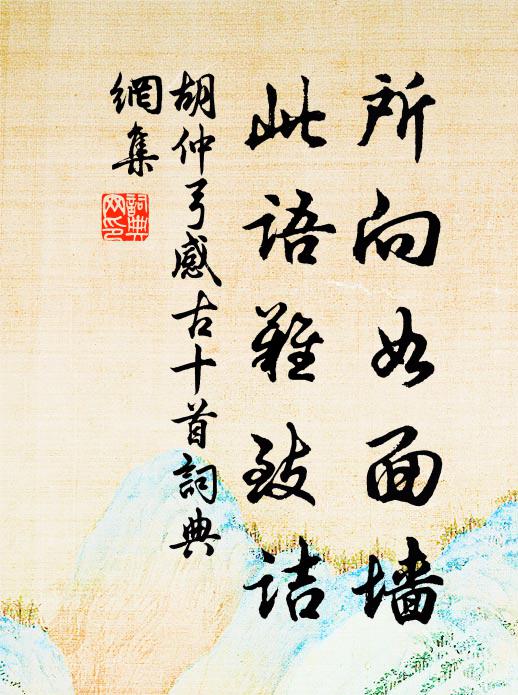 所向如面墙
此语难致诘
胡仲弓感古十首词典
網集
詞典
网印